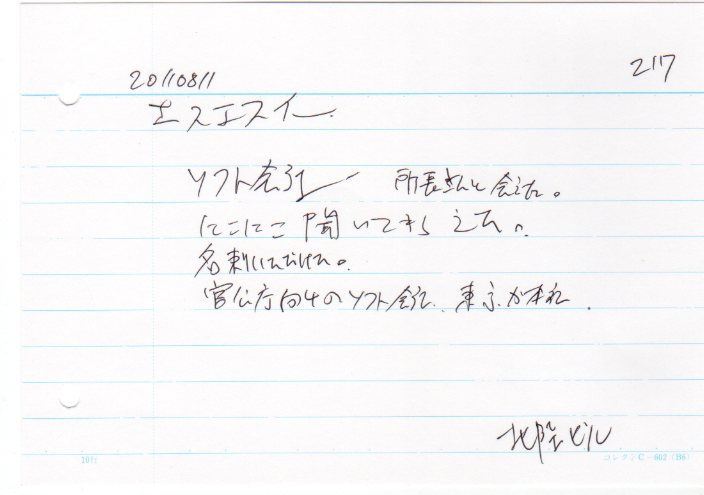 20110811
217
エスエスイー
ソフト会社 所長さんと会えた。
にこにこ聞いてもらえた。
名刺いただけた。
官公庁向けのソフト会社、東京が本社.
北陸ビル
10行
コレクト C-602 (B6)